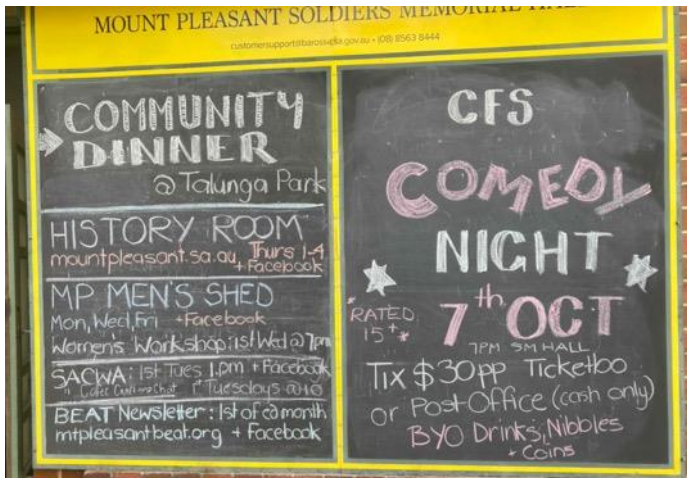 MOUNT PLEASANT SOLDIERS MEMORIAL HALL
customersupport@barossa.sa.gov.au • (08) 8563 8444
COMMUNITY
DINNER
@ Talunga Park
HISTORY ROOM
mountpleasant.sa.au Thurs 1-4
+ Facebook
MP MEN'S SHED
Mon, Wed, Fri + Facebook
Women's Workshop: 1st Wed @ 7pm
SACWA: 1st Tues 1.pm + Facebook
Tuesdays @10
BEAT Newsletter: 1st of ea month
mtpleasantbeat.org + Facebook
CFS
COMEDY
NIGHT
RATED 15+
7th OCT
7PM SM HALL
Tix $30pp Ticketboo
or Post Office (cash only)
BYO Drinks, Nibbles
+ Coins